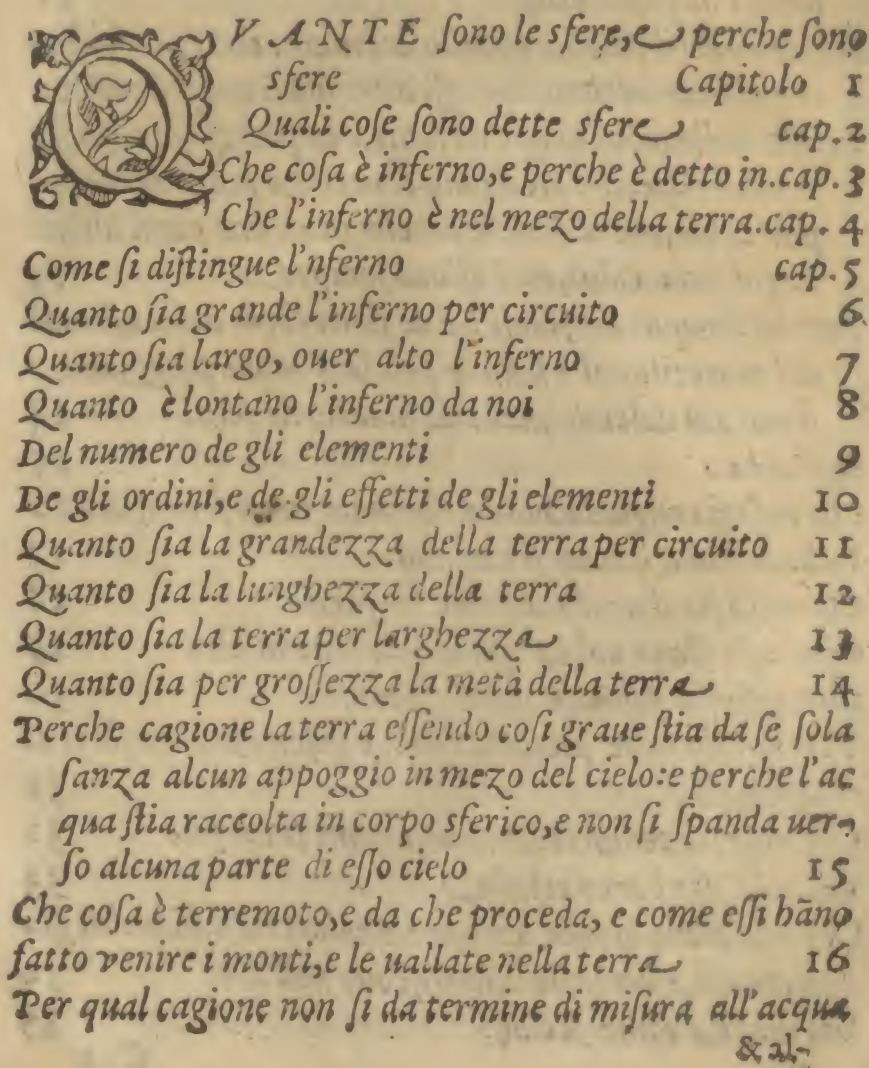 QVANTE ſono le sfere, e perche ſono
sfere Capitolo 1
Quali coſe ſono dette sfere cap. 2
Che coſa è inferno, e perche è detto in. cap. 3
Che l'inferno è nel mezo della terra. cap. 4
Come ſi diſtingue l'nferno cap. 5
Quanto ſia grande l'inferno per circuito 6
Quanto ſia largo, ouer alto l'inferno 7
Quanto è lontano l'inferno da noi 8
Del numero de gli elementi 9
De gli ordini, e de gli effetti de gli elementi 10
Quanto ſia la grandezza della terra per circuito 11
Quanto ſia la lunghezza della terra 12
Quanto ſia la terra per larghezza 13
Quanto ſia per groſſezza la metà della terra 14
Perche cagione la terra eſſendo coſi graue ſtia da ſe ſola
ſanza alcun appoggio in mezo del cielo: e perche l'ac
qua ſtia raccolta in corpo sferico, e non ſi ſpanda uer-
ſo alcuna parte di eſſo cielo 15
Che coſa è terremoto, e da che proceda, e come eſſi hāno
fatto venire i monti, e le uallate nella terra 16
Per qual cagione non ſi da termine di miſura all'acqua
& al-